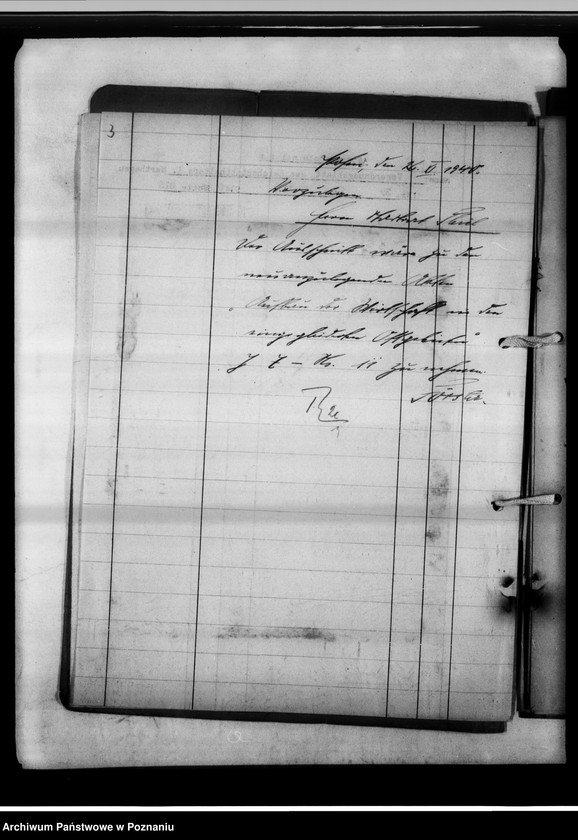 3
Posen, den 26. V. 1940.
Vorzulegen
Herrn Paul
Der Ausschnitt wäre zu den
neuanzulegenden Akten
„Aufbau der Wirtschaft in den
eingegliederten Ostgebieten"
zu nehmen.
Archiwum Państwowe w Poznaniu